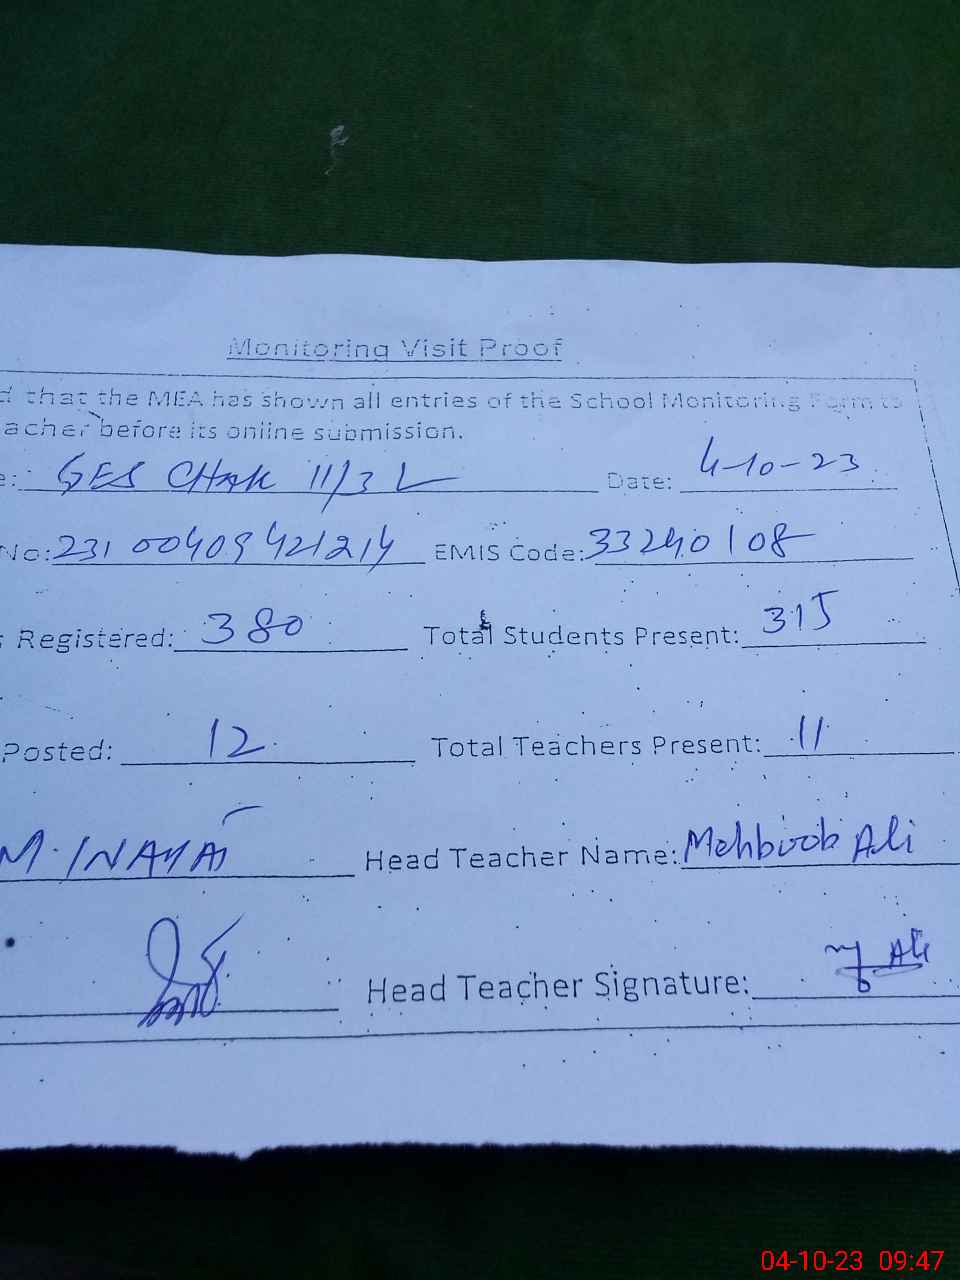 Monitoring Visit Proof
d that the MEA has shown all entries of the School Monitoring Form to
acher before its online submission.
e: GES CHAK 11/3 L Date: 4-10-23
No: 23100409421214 EMIS Code: 33240108
s Registered: 380 Total Students Present: 315
Posted: 12 Total Teachers Present: 11
M. INAYAT Head Teacher Name: Mehboob Ali
Head Teacher Signature: Ali
04-10-23 09:47